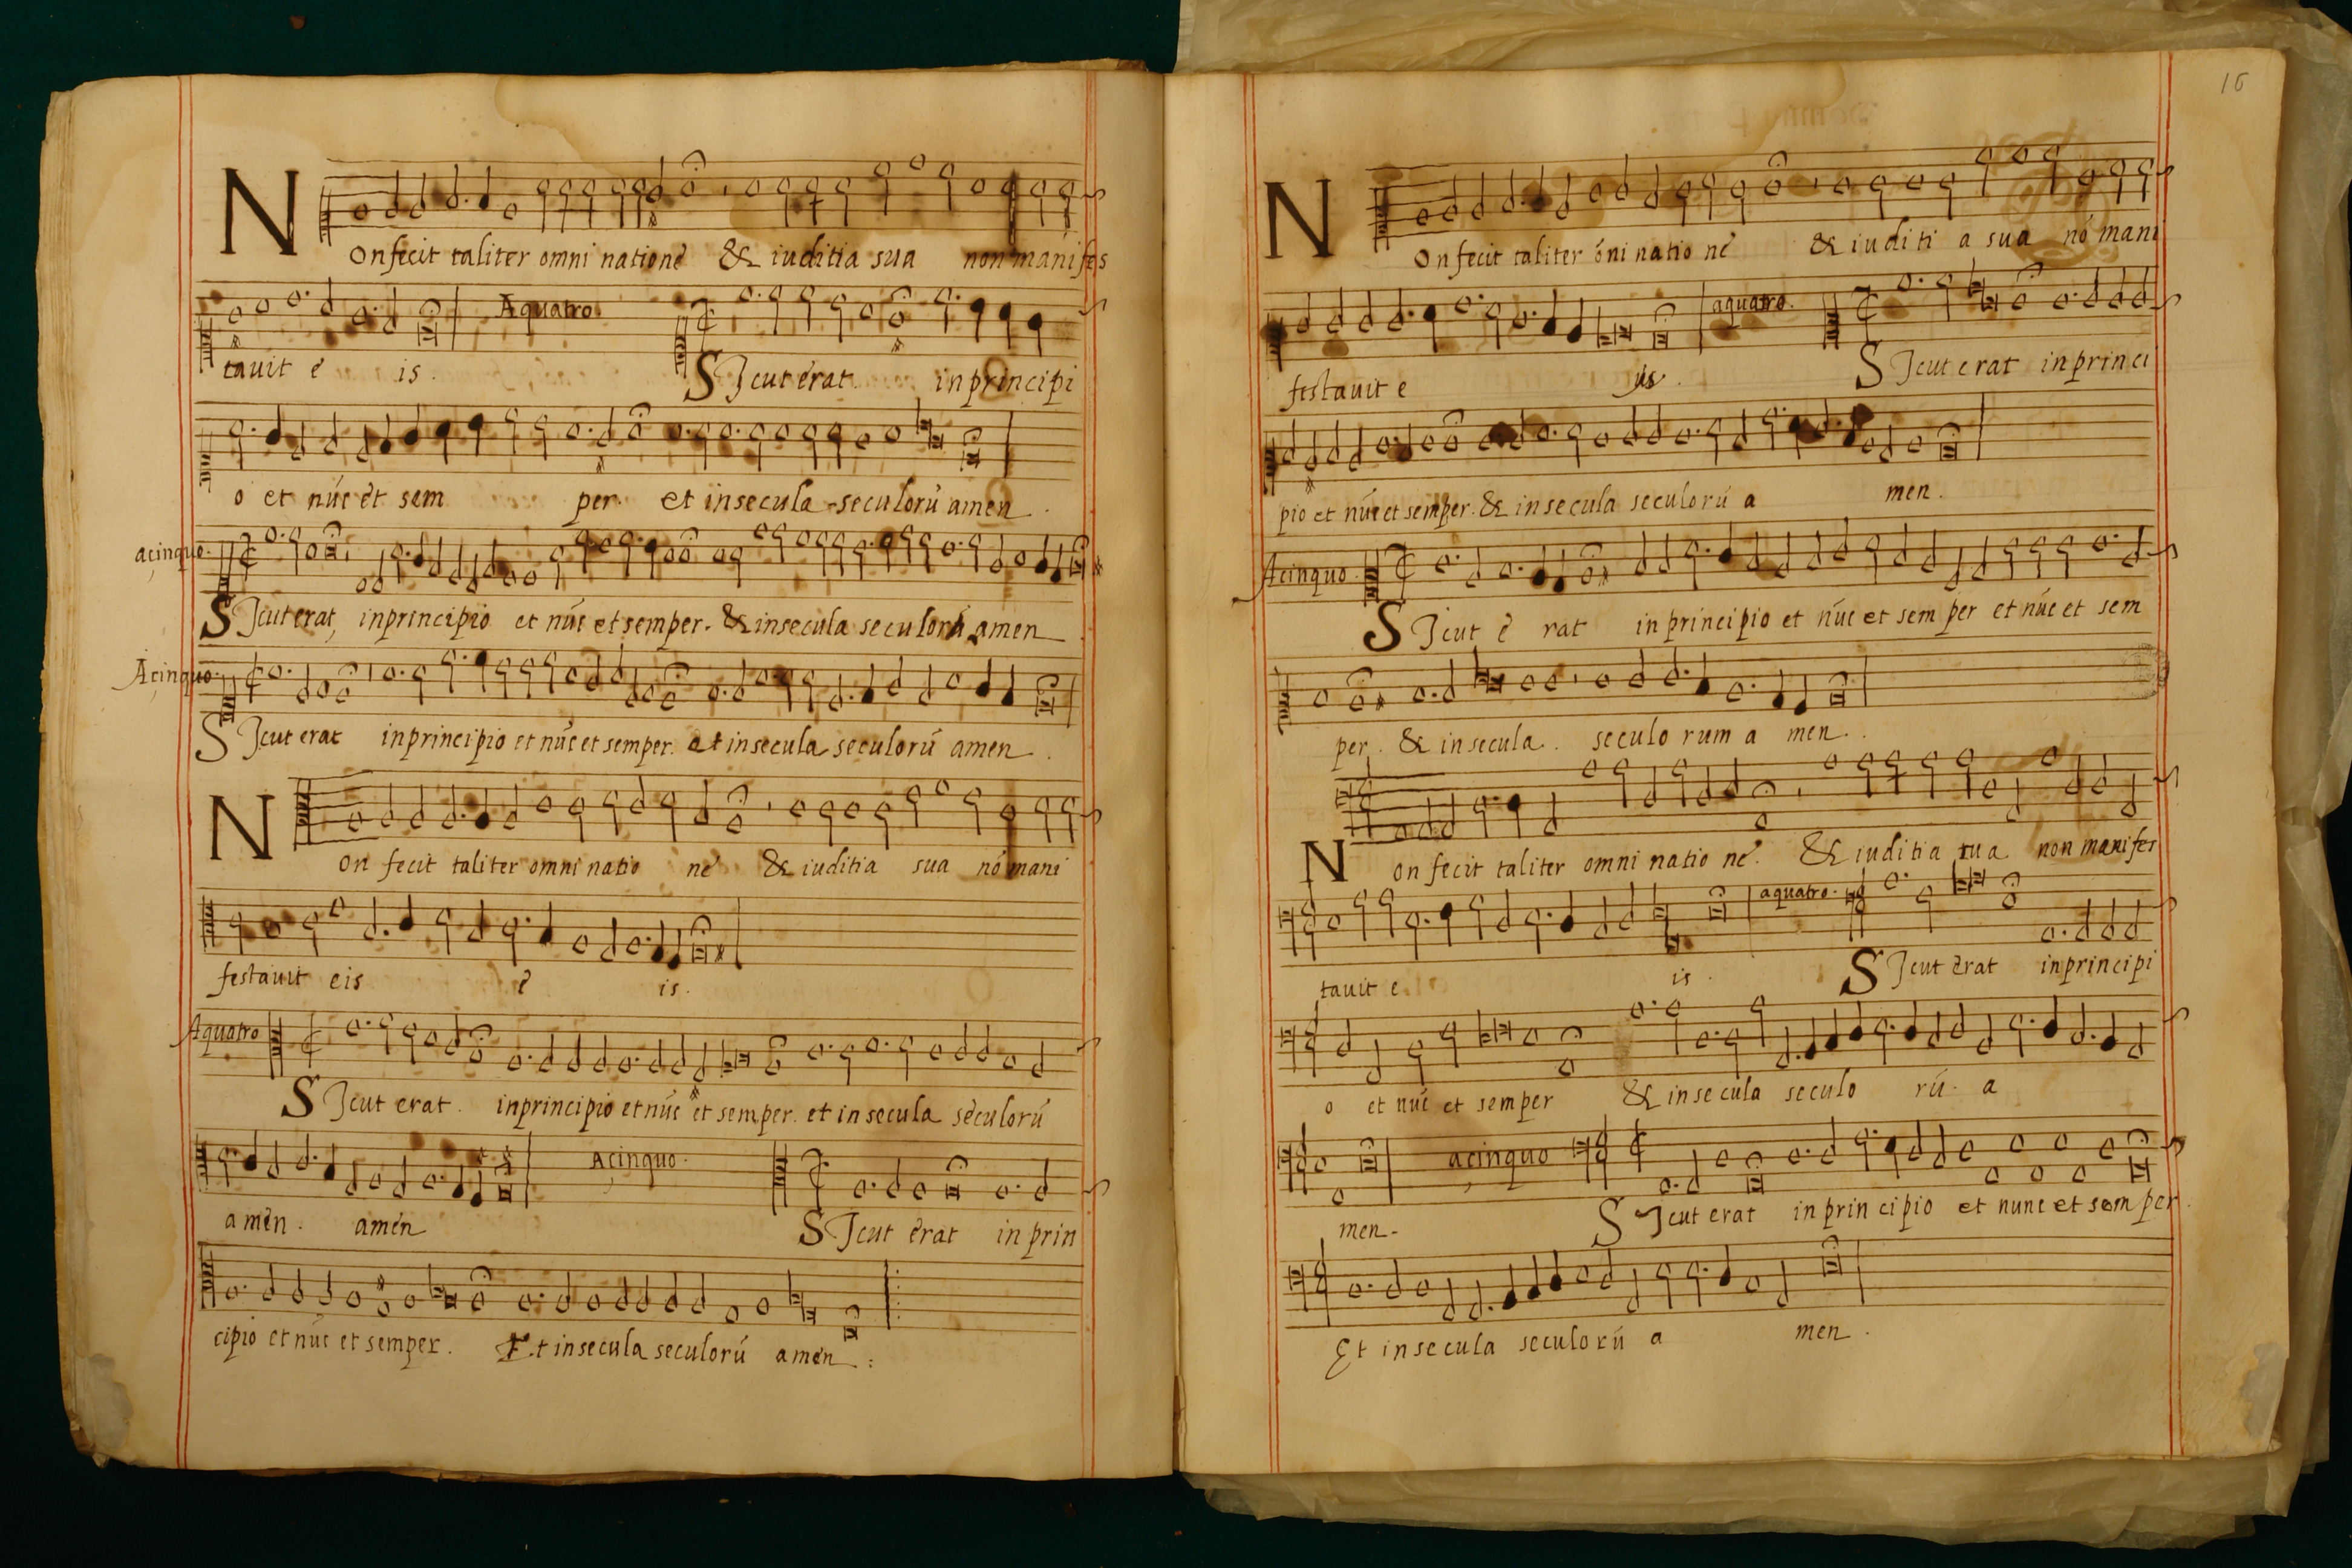 NOnfecit taliter omni nationē & iuditia sua non manifes
Aquatro.
tauit e is. SJcut erat. inprincipi
o et nūc et sem per. et insecula seculorū amen.
acinquo.
SJcut erat, inprincipio et nūc et semper. & insecula seculorū amen
Acinquo.
SJcut erat inprincipio et nūc et semper. et insecula seculorū amen.
NOn fecit taliter omni natio nē & iuditia sua nō mani
festauit eis e is.
Aquatro
SJcut erat. inprincipio et nūc et semper. et in secula seculorū
Acinquo.
amen. amen SJcut erat in prin
cipio et nūc et semper. Et insecula seculorū amen:
16
NOnfecit taliter ōni natio nē & iuditi a sua nō mani
aquatro.
festauit e is. SJcut erat inprinci
pio et nūc et semper. & insecula seculorū a men.
Acinquo.
SJcut e rat in principio et nūc et sem per et nūc et sem
per. & insecula.. seculo rum a men..
NOn fecit taliter omni natio nē. & iuditia sua non manifes
aquatro.
tauit e is. SJcut erat inprincipi
o et nūc et semper & insecula seculo rū. a
acinquo
men. SJcut erat in prin cipio et nunc et semper.
Et insecula seculorū a men.